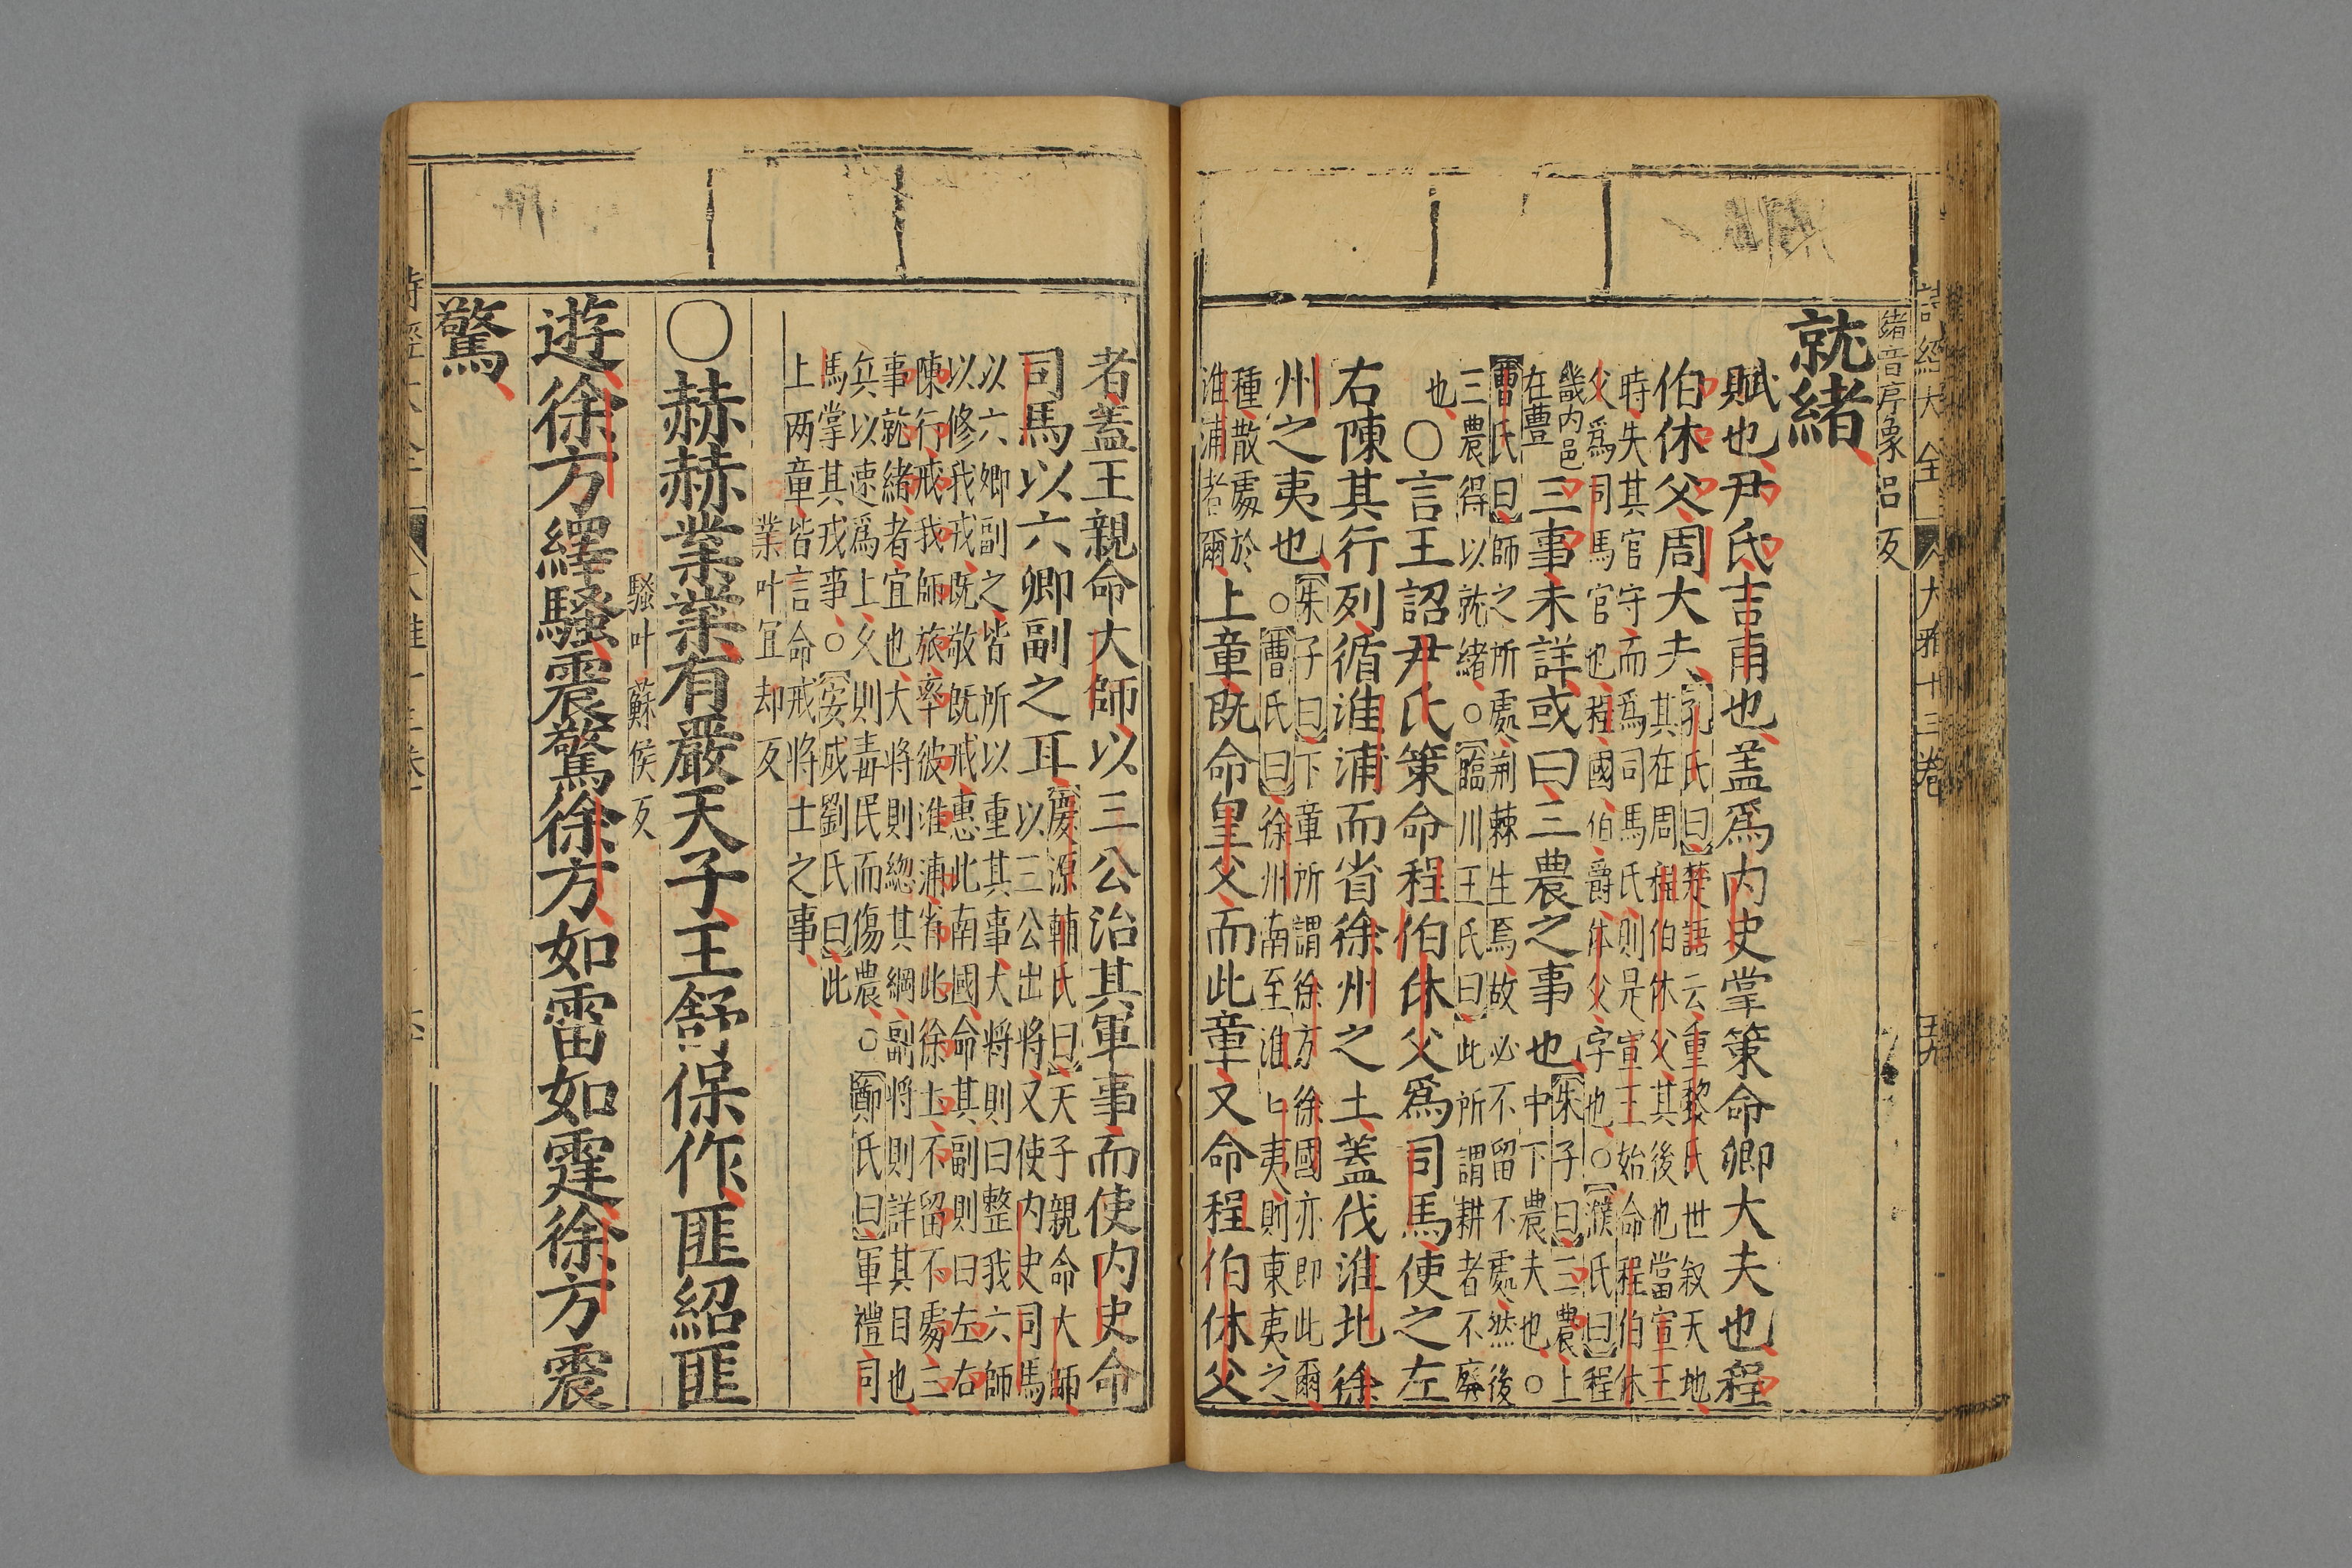 詩經大全
大雅十三卷
五九
緒音序象呂反
就緒
賦也尹氏吉甫也蓋爲內史掌策命卿大夫也程
伯休父周大夫
孔氏曰楚語云重黎氏世叙天地
其在周程伯休父其後也當宣王
時失其官守而爲司馬氏則是宣王始命程伯休
父爲司馬官也程國伯爵休父字也○濮氏曰程
畿內邑
在豐
三事未詳或曰三農之事也
朱子曰三農上
中下農夫也○
曹氏曰師之所處荆棘生焉故必不留不處然後
三農得以就緒○臨川王氏曰此所謂耕者不廢
也
○言王詔尹氏策命程伯休父爲司馬使之左
右陳其行列循淮浦而省徐州之土蓋伐淮北徐
州之夷也
朱子曰下章所謂徐方徐國亦即此爾
○曹氏曰徐州南至淮上夷則東夷之
種散處於
淮浦者爾
上章旣命皇父而此章又命程伯休父
者蓋王親命大師以三公治其軍事而使內史命
司馬以六卿副之耳
慶源輔氏曰天子親命大師
以三公出將又使內史司馬
以六卿副之皆所以重其事大將則曰整我六師
以修我戎旣敬旣戒惠此南國命其副則曰左右
陳行戒我師旅率彼淮浦省此徐土不留不處三
事就緒者宜也大將則總其綱副將則詳其目也
兵以速爲上久則毒民而傷農○鄭氏曰軍禮司
馬掌其戎事○安成劉氏曰此
上兩章皆言命戒將士之事
業叶宜却反
○赫赫業業有嚴天子王舒保作匪紹匪
騷叶蘇侯反
遊徐方繹騷震驚徐方如雷如霆徐方震
驚